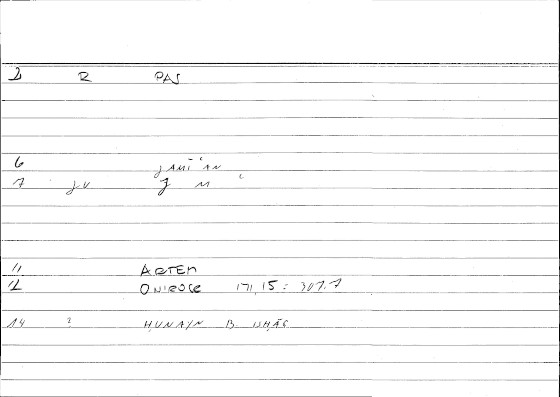 2 R PAS
6 jamī'an
7 jv j m '
11 ARTEM
12 ONIROCR 171,15 = 307.7
14 ? ḤUNAYN B. ISḤĀQ